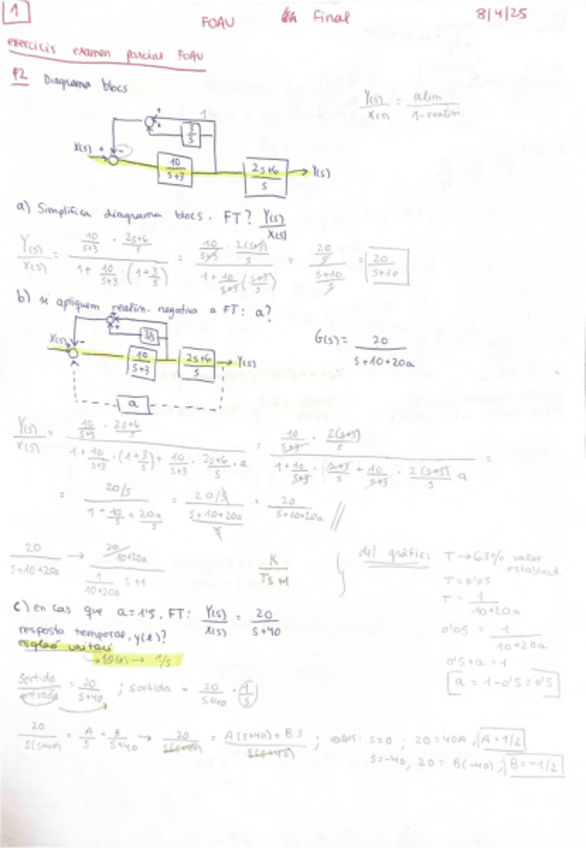 1
FOAU Final 8/4/25
exercicis examen parcial FOAU
P2 Diagrama blocs
Y(s)/X(s) = alim/1-realim
X(s) + - + + 1 3/s 10/s+3 2s+6/s Y(s)
a) Simplifica diagrama blocs. FT? Y(s)/X(s)
Y(s)/X(s) = (10/s+3 · 2s+6/s)/(1+ 10/s+3 · (1+3/s)) = (10/s+3 · 2(s+3)/s)/(1+ 10/s+3 (s+3/s)) = (20/s)/(s+10/s) = 20/s+10
b) si apliquem realim. negativa a FT: a?
X(s) - + 3/s 10/s+3 2s+6/s Y(s)
a
G(s) = 20/s+10+20a
Y(s)/X(s) = (10/s+3 · 2s+6/s)/(1+ 10/s+3 · (1+3/s) + 10/s+3 · 2s+6/s · a) = (10/s+3 · 2(s+3)/s)/(1+ 10/s+3 · s+3/s + 10/s+3 · 2(s+3)/s a) =
= (20/s)/(1+ 10/s + 20a/s) = (20/s)/(s+10+20a/s) = 20/s+10+20a //
20/s+10+20a → (20/10+20a)/(1/10+20a s+1) K/Ts+1
del gràfic: T → 63% valor
T = 0'05
T = 1/10+20a
0'05 = 1/10+20a
0'5+a = 1
a = 1-0'5 = 0'5
c) en cas que a=1'5, FT: Y(s)/X(s) = 20/s+40
resposta temporal, y(t)?
esglao unitari
→ 1/s
Sortida/entrada = 20/s+40 ; sortida = 20/s+40 · 1/s
20/s(s+40) = A/s + B/s+40 → 20/s(s+40) = A(s+40)+Bs/s(s+40) ; s=0 ; 20=40A, A=1/2
s=-40, 20 = B(-40), B=-1/2